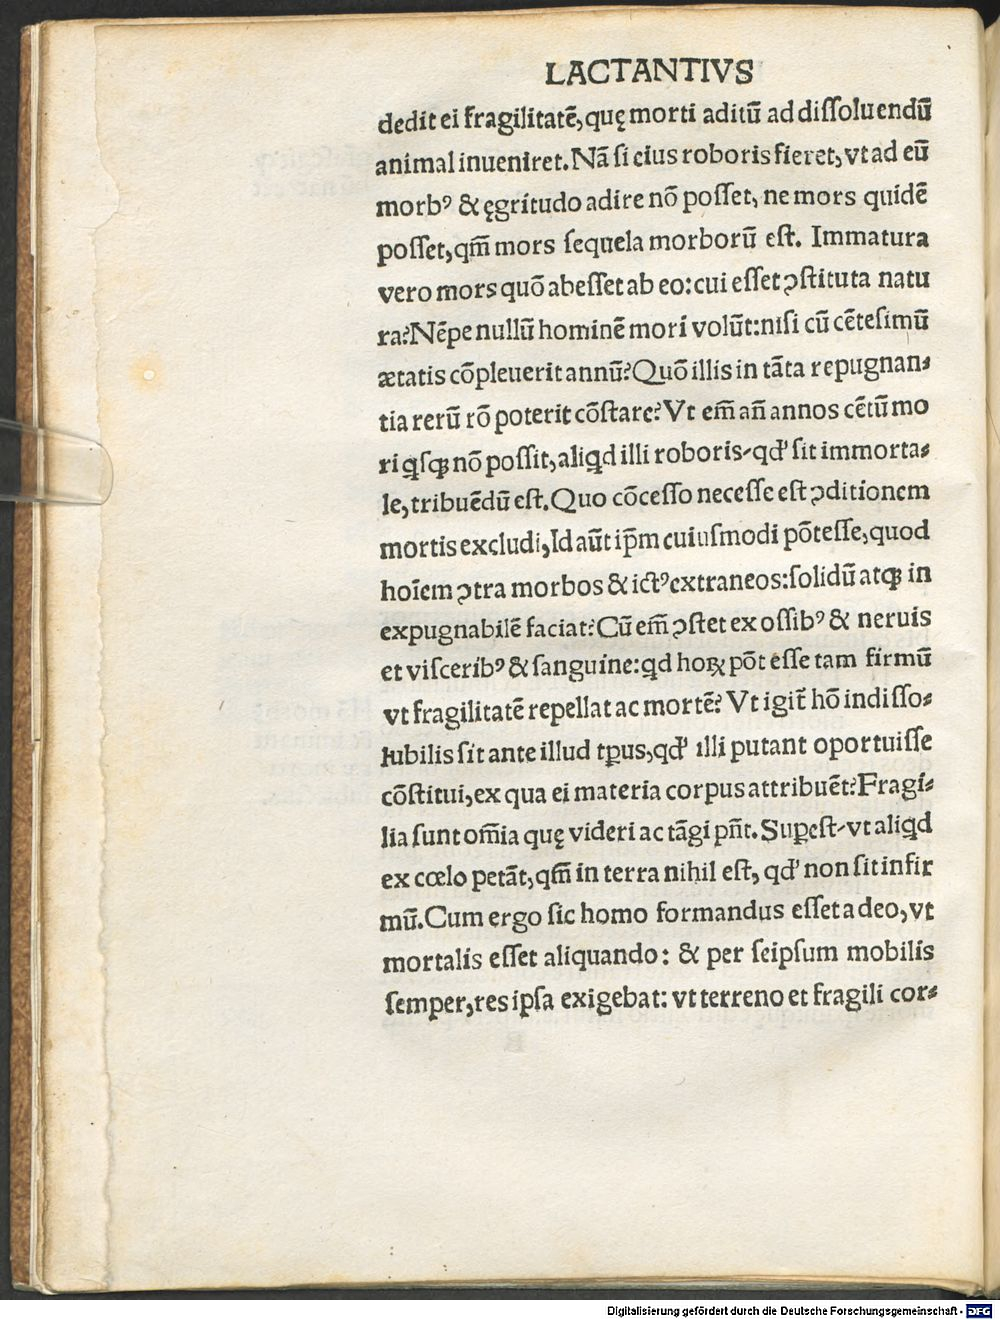 LACTANTIVS
dedit ei fragilitatē, quę morti aditū ad diſſoluendū
animal inueniret. Nā ſi eius roboris fieret, vt ad eū
morbꝰ & ęgritudo adire nō poſſet, ne mors quidē
poſſet, qm̄ mors ſequela morborū eſt. Immatura
vero mors quō abeſſet ab eo: cui eſſet ꝯſtituta natu
ra? Nēpe nullū hominē mori volūt: niſi cū cēteſimū
ætatis cōpleuerit annū? Quō illis in tāta repugnan⸗
tia rerū rō poterit cōſtare? Vt em̄ an̄ annos cētū mo
ri qͥſqꝫ nō poſſit, aliqͥd illi roboris⸝qd' ſit immorta⸗
le, tribuēdū eſt. Quo cōceſſo neceſſe eſt ꝯditionem
mortis excludi, Id aūt ip̄m cuiuſmodi pōt eſſe, quod
hoīem ꝯtra morbos & ictꝰ extraneos: ſolidū atqꝫ in
expugnabilē faciat? Cū em̄ ꝯſtet ex oſſibꝰ & neruis
et viſceribꝰ & ſanguine: qd hoꝝ pōt eſſe tam firmū
vt fragilitatē repellat ac mortē? Vt igit̄ hō indiſſo⸗
lubilis ſit ante illud tp̄us, qd' illi putant oportuiſſe
cōſtitui, ex qua ei materia corpus attribuēt? Fragi⸗
lia ſunt om̄ia quę videri ac tāgi pn̄t. Suꝑeſt⸝vt aliqͥd
ex cœlo petāt, qm̄ in terra nihil eſt, qd' non ſit infir
mū. Cum ergo ſic homo formandus eſſet a deo, vt
mortalis eſſet aliquando: & per ſeipſum mobilis
ſemper, res ipſa exigebat: vt terreno et fragili cor⸗
Digitalisierung gefördert durch die Deutsche Forschungsgemeinschaft - DFG